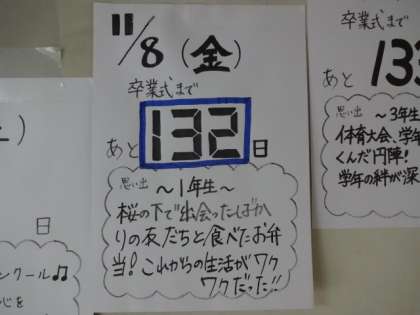 11/8（金）
卒業式まで
あと132日
思い出 ～1年生～
桜の下で出会ったばか
りの友だちと食べたお弁
当！これからの生活がワク
ワクだった!!
卒業式まで
あと133
思い出 ～3年生
体育大会、学年
くんだ円陣！
学年の絆が深
）
日
ンクール♫
心を